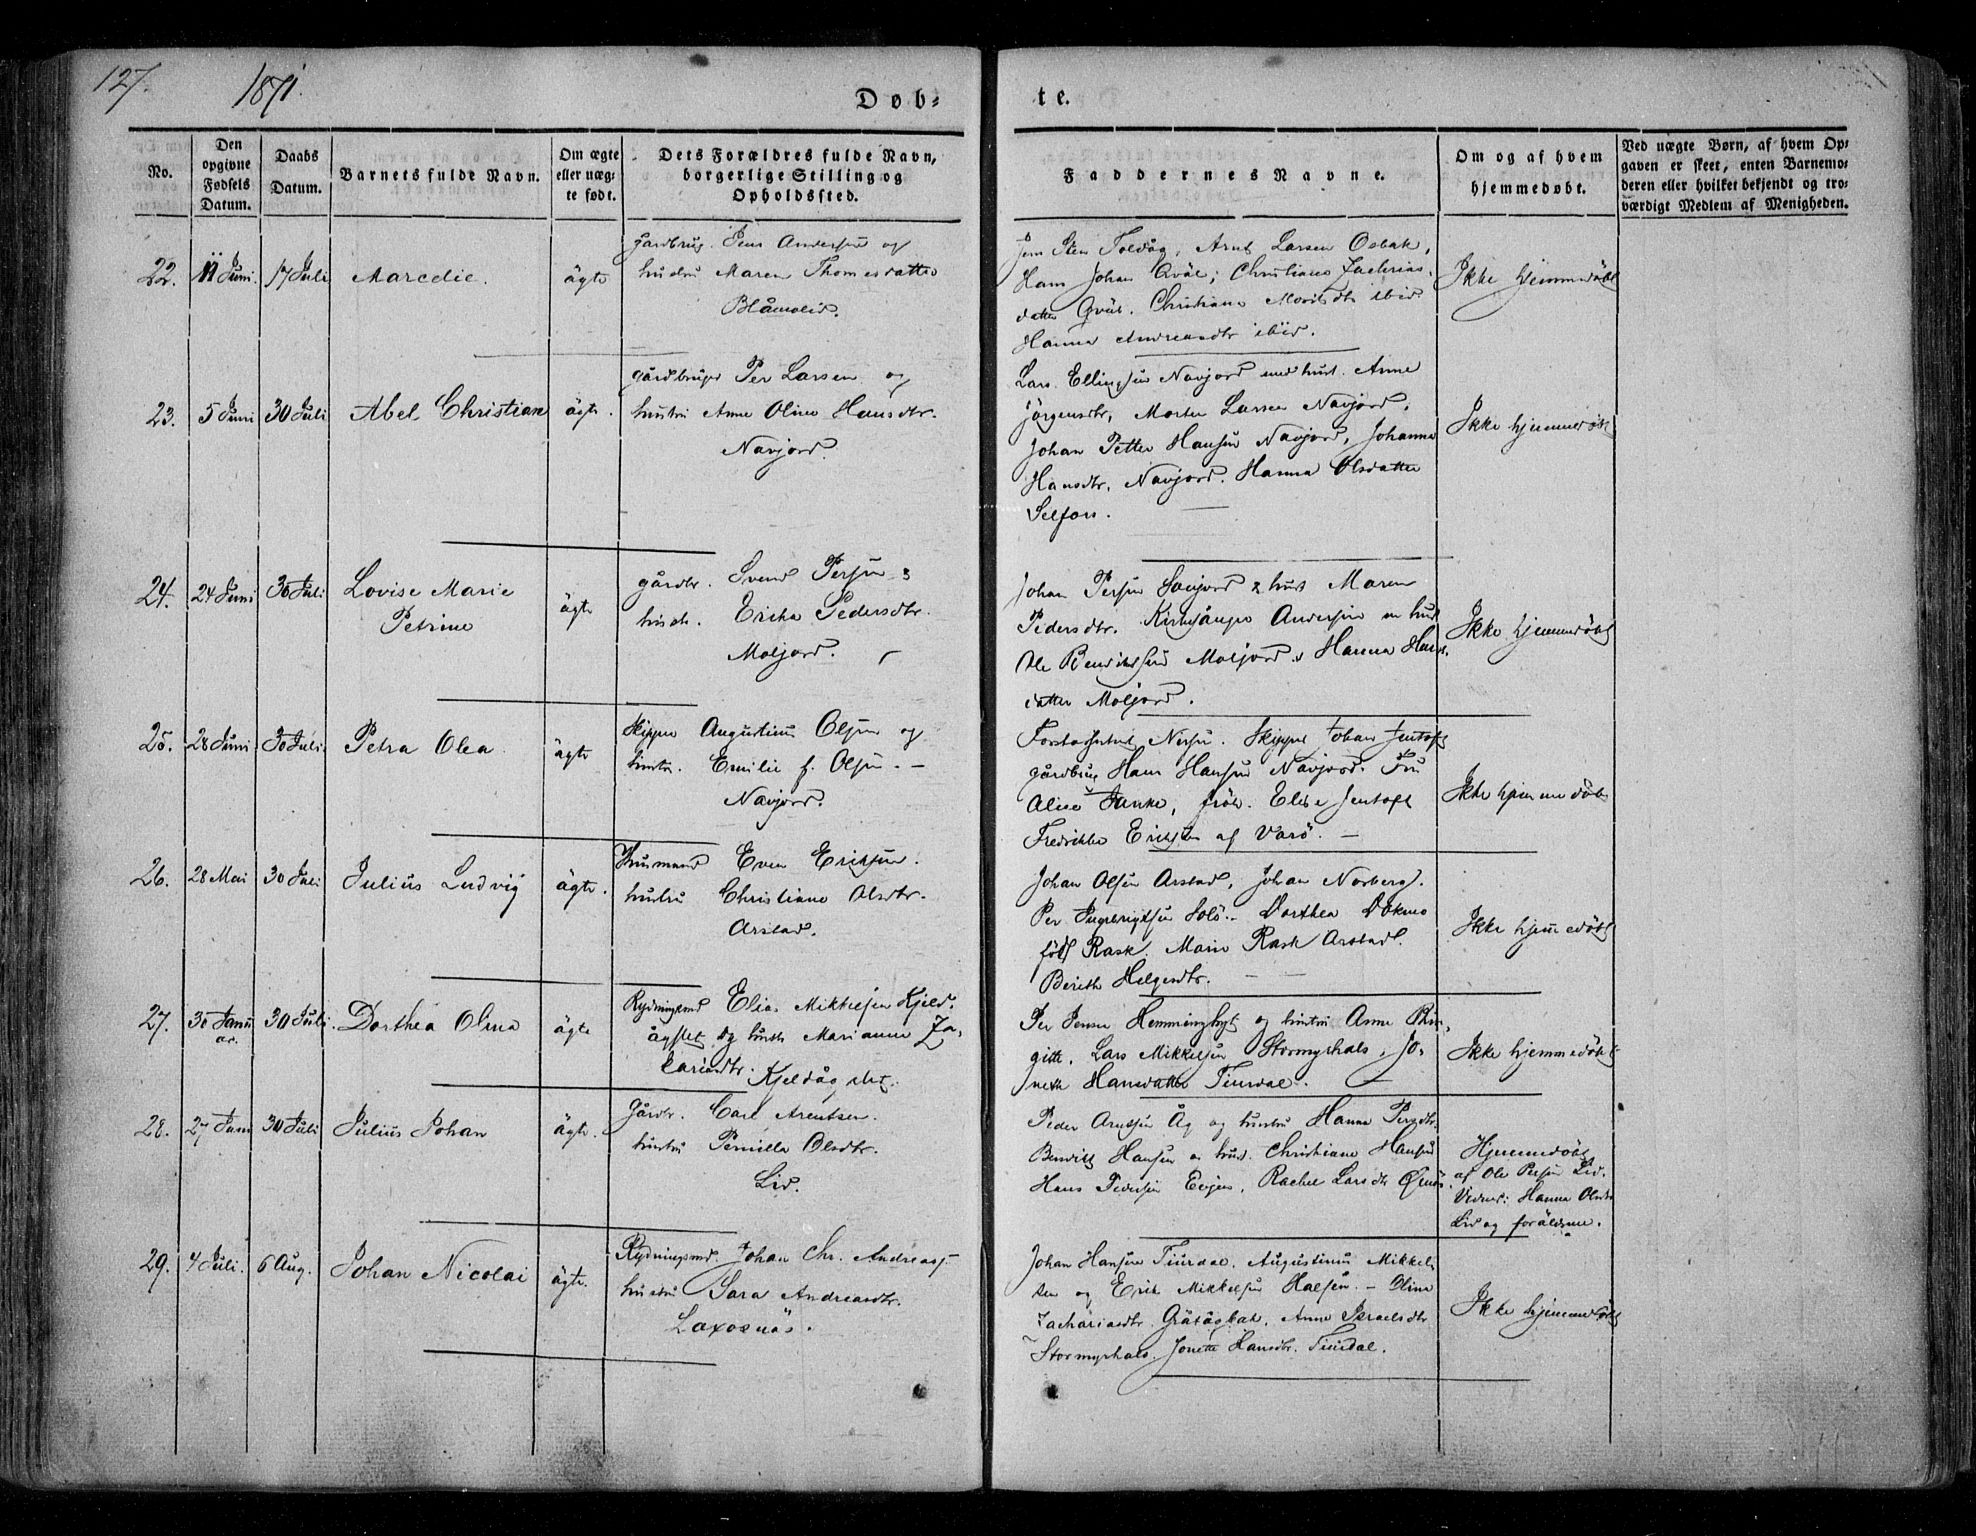 127.
1871.
Døb=
te.
No.
Den opgivne Fødsels Datum.
Daabs Datum.
Barnets fulde Navn.
Om ægte eller uæg- te født.
Dets Forældres fulde Navn, borgerlige Stilling og Opholdssted.
Faddernes Navne.
Om og af hvem hjemmedøbt.
Ved uægte Børn, af hvem Op- gaven er skeet, enten Barnemo- deren eller hvilket bekjendt og tro- værdigt Medlem af Menigheden.
22.
11 Juni.
17 Juli
Marcelie.
ägte
Gardbrug. Jens Andersen og
hustru Maren Thomesdatter
Arnt Larsen Osbak,
Hans Johan Qväl; Christiane Zacharias
datter Qväl. Christiane ibid
Hanna Andreasdtr ibid.
Ikke hjemmedöbt
23.
5 Juni
30 Juli
Abel Christian
ägte.
gårdbruger Per Larsen og
hustru Anne Oline Hansdtr.
Navjord.
Lars Ellingsen Navjord med hust. Anne
Jörgensdtr, Morten Larsen Navjord,
Johan Petter Hansen Navjord, Johanna
Hansdtr, Navjord. Hanna Olsdatter
Selfors.
Ikke hjemmedöbt
24.
24 Juni
30 Juli
Lovise Marie
Petrine
ägte
gårdbr. Svend Persen &
Erika Pedersdtr.
Moljord.
Johan Persen & hust Maren
Pedersdtr. Kirkesanger Andersen
Ole Benriksen Moljord & Hanna Hans
datter Moljord.
Ikke hjemmedöbt
25.
28 Juni
30 Juli.
Petra Olea.
ägte
Skipper Augustinus Olsen og
hustru. Emilie f. Olsen. -
Navjord.
Skipper Johan Jentoft
gårdbrug Hans Hansen Navjord. Fru
Alice Janke, frök. Elise Jentoft
Fredrikke Eriksen af Varö. -
Ikke hjemmedöbt
26.
28 Mai
30 Juli
Julius Ludvig
ägte.
Husmand Even Eriksen.
hustru Christiane Olsdtr.
Arstad.
Johan Olsen Arstad, Johan Norberg.
Per Ingebrigtsen Solö. - Dorthea
född Rask. Marie Rask Arstad.
Bereth Helgesdtr. -
Ikke hjemmedöbt
27.
30 Janu
ar.
30 Juli.
Dorthea Olina
ägte
Rydningsmd Elias Mikkelsen Kjeld-
ågslet og hustr Marianne Za-
kariasdtr. Kjeldågslet.
Per Jensen Hemminghyt og hustru Anne Bir-
gitte. Lars Mikkelsen Stormyrhals, Jo-
neth Hansdatter
Ikke hjemmedöbt
28.
27 Juni
30 Juli
Julius Johan
ägte.
Gårdbr. Carl Arentsen.
hustru Pernilla Olsdtr.
Lid.
Peder Arntsen Åg og hustru Hanna Persdtr.
Hansen hust. Christiane Hansen
Hans Pedersen Evjen, Rachel Larsdtr
Hjemmedöbt
af Ole Persen Lid.
Vidner: Hanna Olsdtr
Lid og foräldrene.
29.
4 Juli.
6 Aug.
Johan Nicolai
ägte.
Rydningsmd Johan Chr. Andreass
hustru Sara Andreasdtr.
Laxosnäs.
Johan Hansen Augustinus Mikkel
sen og Erik Mikkelsen - Oline
Zachariasdtr Gråtåghal. Anne Israelsdtr
Stormyrhals. Jonette Hansdtr.
Ikke hjemmedöbt